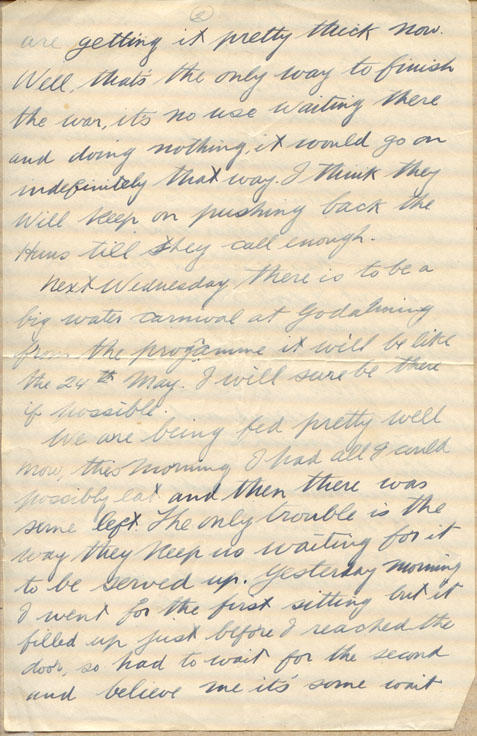 2
are getting it pretty thick now.
Well, that's the only way to finish
the war, it's no use waiting there
and doing nothing, it would go on
indefinitely that way. I think they
will keep on pushing back the
Huns till they call enough.
Next Wednesday there is to be a
big water carnival at Godalming
from the programme it will be like
the 24th May. I will sure be there
if possible.
We are being fed pretty well
now, this morning I had all I could
possibly eat and then there was
some left. The only trouble is the
way they keep us waiting for it
to be served up. Yesterday morning
I went for the first sitting but it
filled up just before I reached the
door, so had to wait for the second
and believe me it's some wait